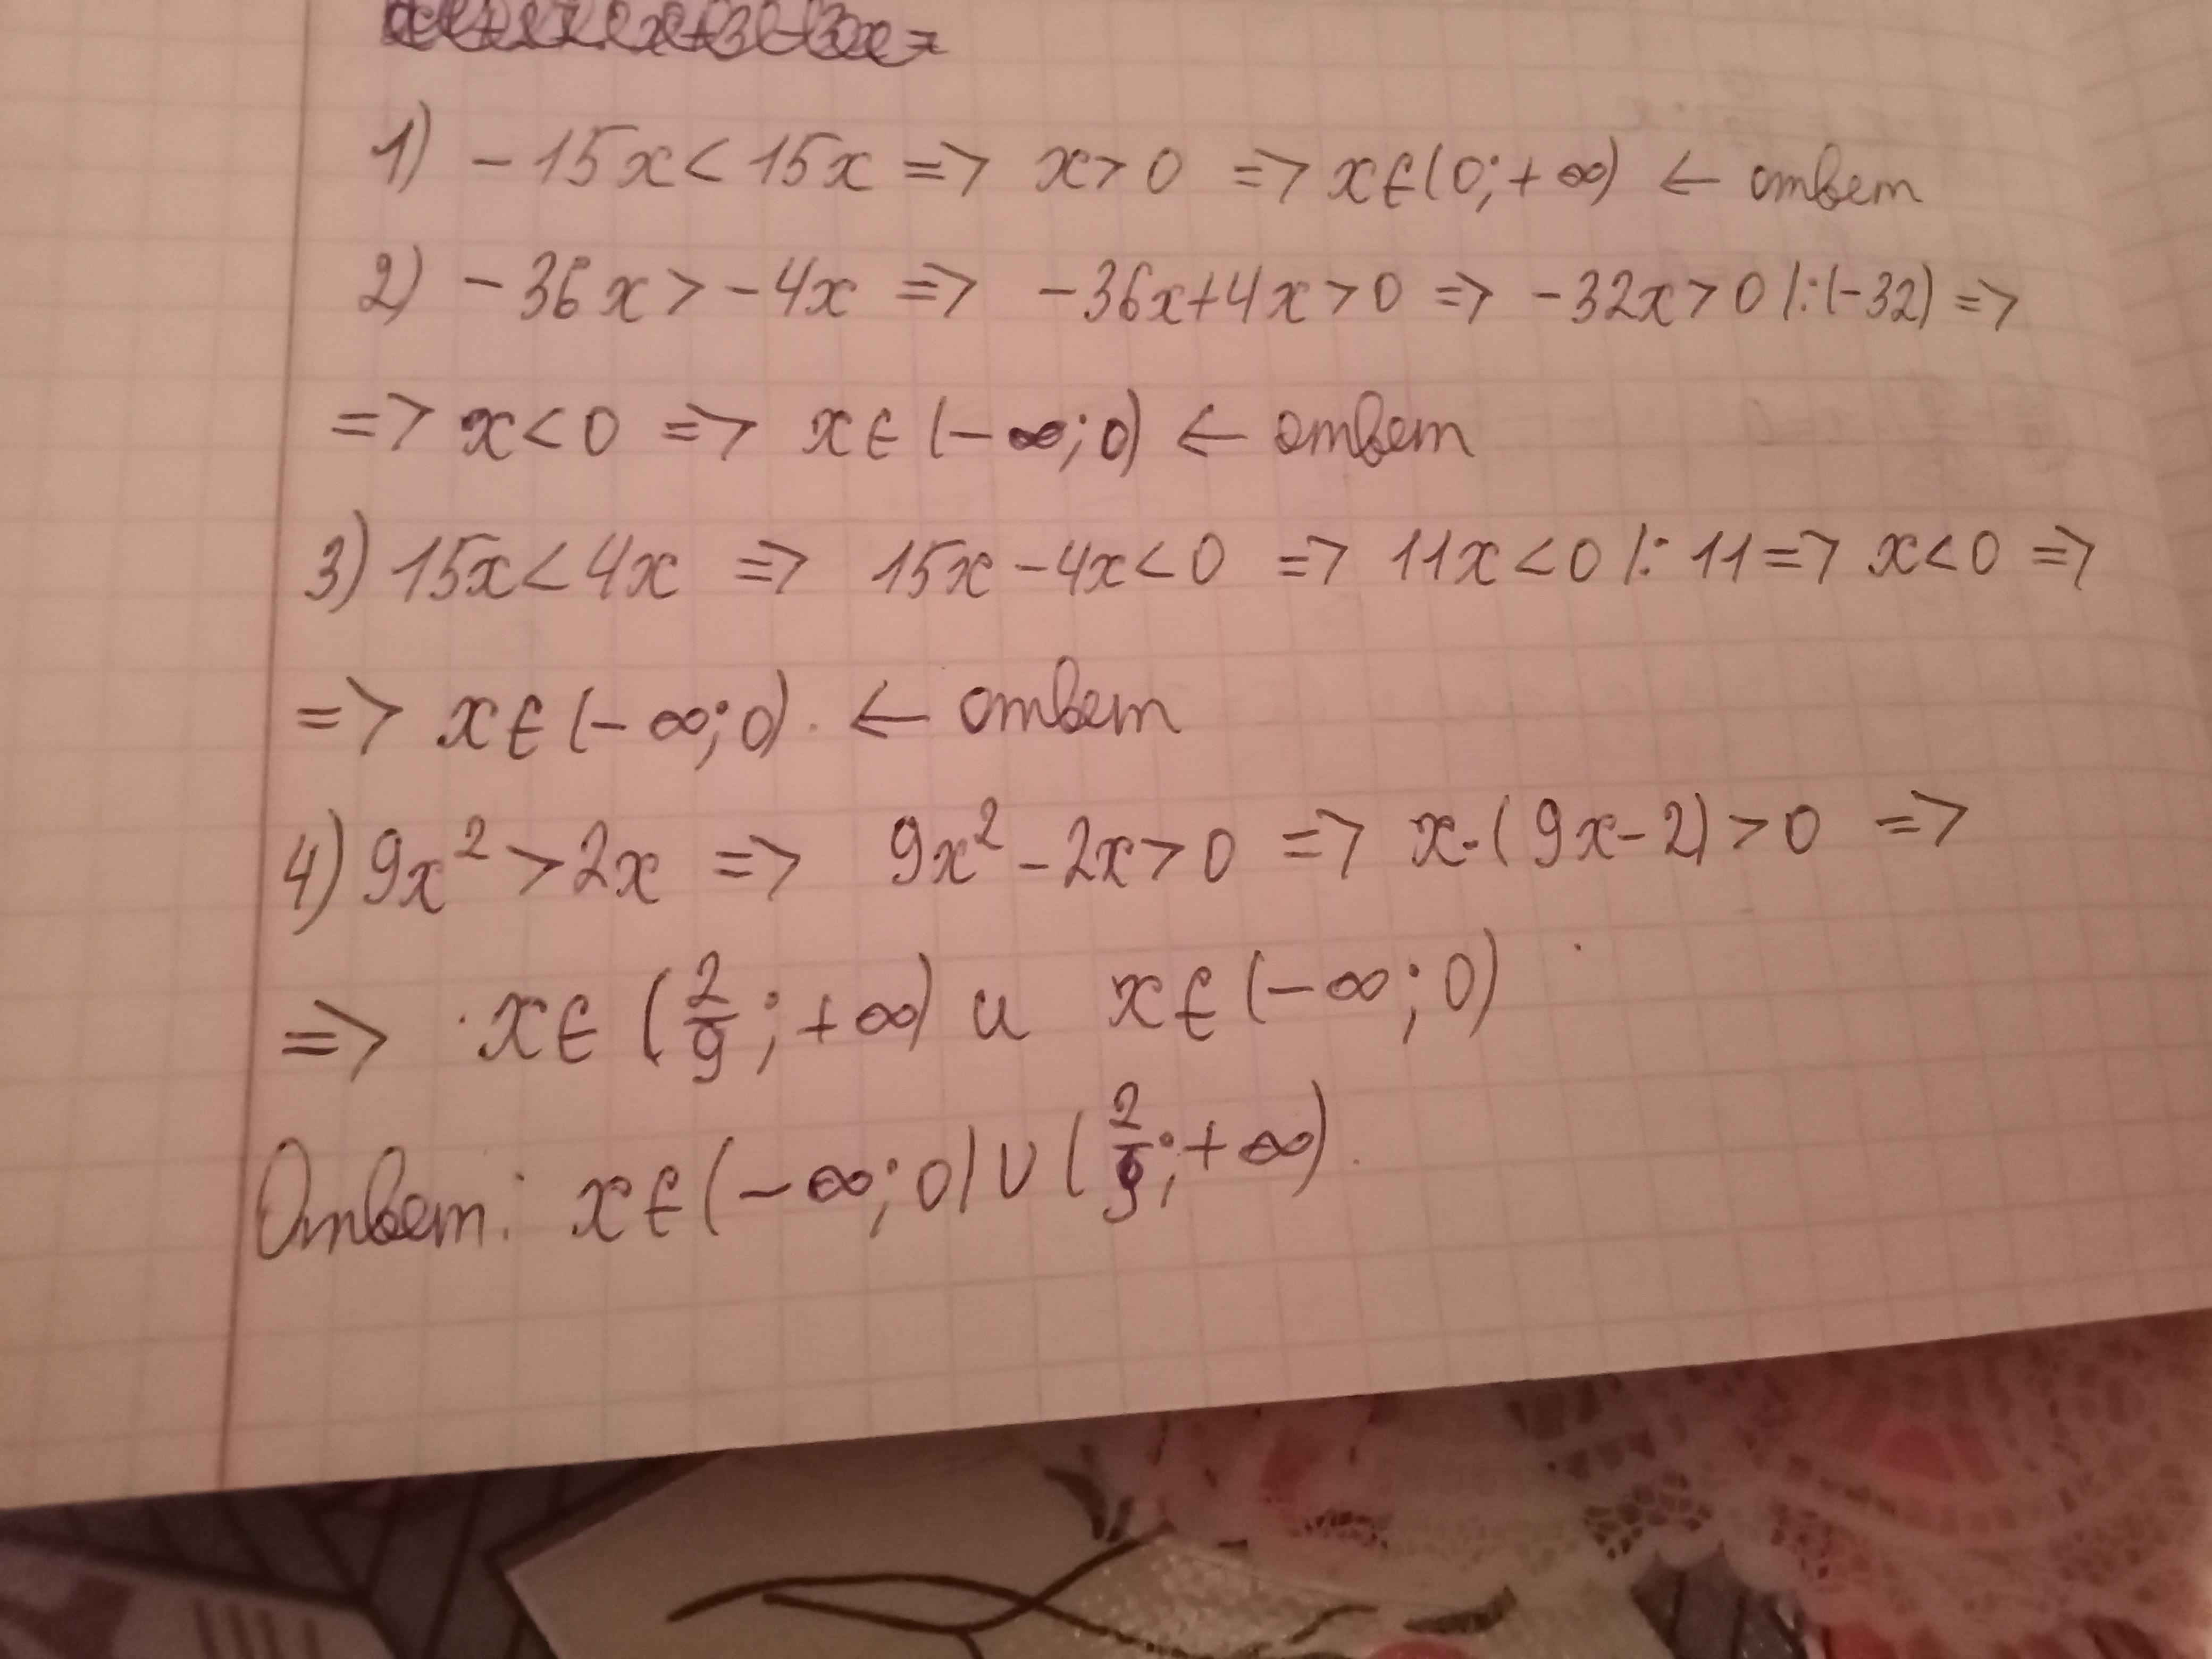 1) -15x < 15x => x > 0 => x ∈ (0; +∞) ← ответ
2) -36x > -4x => -36x + 4x > 0 => -32x > 0 |:(-32) =>
=> x < 0 => x ∈ (-∞; 0) ← ответ
3) 15x < 4x => 15x - 4x < 0 => 11x < 0 |: 11 => x < 0 =>
=> x ∈ (-∞; 0). ← ответ
4) 9x² > 2x => 9x² - 2x > 0 => x·(9x - 2) > 0 =>
=> x ∈ (2/9; +∞) и x ∈ (-∞; 0)
Ответ: x ∈ (-∞; 0) ∪ (2/9; +∞).